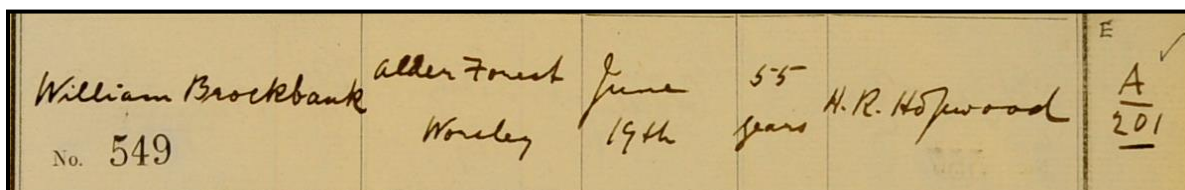 William Brockbank
No. 549
Alder Forest
Worsley
June
19th
55
years
H. R. Hopwood
E
A
201